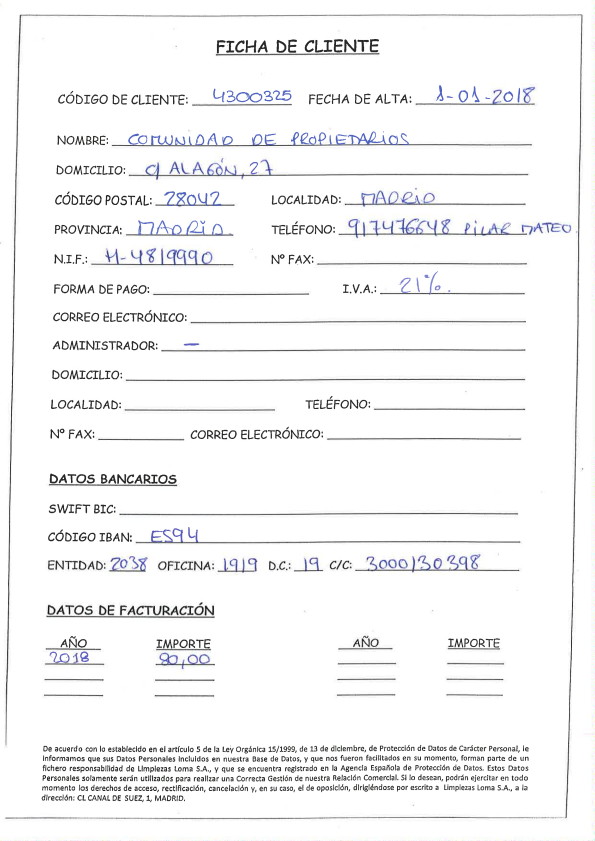 FICHA DE CLIENTE
CÓDIGO DE CLIENTE: 4300325 FECHA DE ALTA: 1-01-2018
NOMBRE: COMUNIDAD DE PROPIETARIOS
DOMICILIO: C/ ALAGÓN, 27
CÓDIGO POSTAL: 28042 LOCALIDAD: MADRID
PROVINCIA: MADRID TELÉFONO: 917476648 PILAR MATEO
N.I.F.: H-4819990 Nº FAX:
FORMA DE PAGO: I.V.A.: 21%.
CORREO ELECTRÓNICO:
ADMINISTRADOR: —
DOMICILIO:
LOCALIDAD: TELÉFONO:
Nº FAX: CORREO ELECTRÓNICO:
DATOS BANCARIOS
SWIFT BIC:
CÓDIGO IBAN: ES94
ENTIDAD: 2038 OFICINA: 1919 D.C.: 19 C/C: 3000130398
DATOS DE FACTURACIÓN
AÑO IMPORTE AÑO IMPORTE
2018 90,00
De acuerdo con lo establecido en el artículo 5 de la Ley Orgánica 15/1999, de 13 de diciembre, de Protección de Datos de Carácter Personal, le
informamos que sus Datos Personales incluidos en nuestra Base de Datos, y que nos fueron facilitados en su momento, forman parte de un
fichero responsabilidad de Limpiezas Loma S.A., y que se encuentra registrado en la Agencia Española de Protección de Datos. Estos Datos
Personales solamente serán utilizados para realizar una Correcta Gestión de nuestra Relación Comercial. Si lo desean, podrán ejercitar en todo
momento los derechos de acceso, rectificación, cancelación y, en su caso, el de oposición, dirigiéndose por escrito a Limpiezas Loma S.A., a la
dirección: CL CANAL DE SUEZ, 1, MADRID.